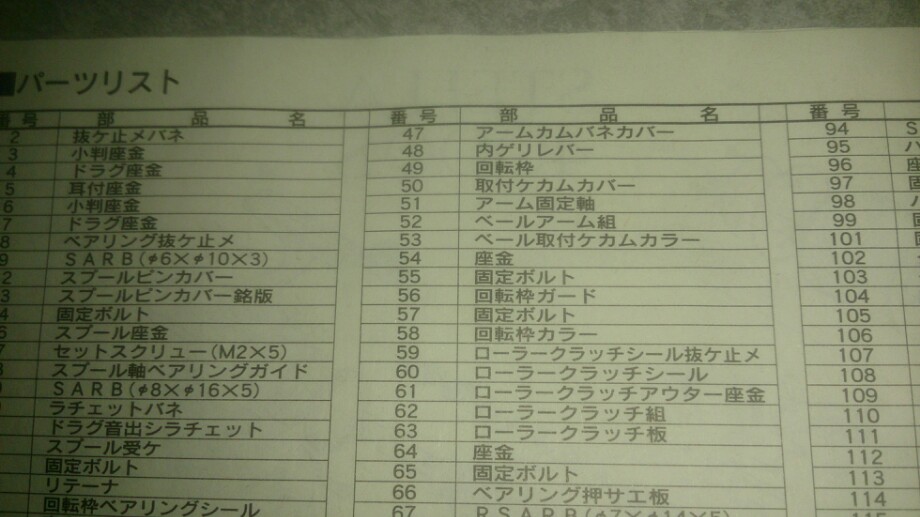 ■パーツリスト
番号 部品名 番号 部品名 番号
2 抜ケ止メバネ 47 アームカムバネカバー 94 S
3 小判座金 48 内ゲリレバー 95
4 ドラグ座金 49 回転枠 96 座
5 耳付座金 50 取付ケカムカバー 97 固
6 小判座金 51 アーム固定軸 98
7 ドラグ座金 52 ベールアーム組 99
8 ベアリング抜ケ止メ 53 ベール取付ケカムカラー 101
9 SARB(φ6×φ10×3) 54 座金 102
2 スプールピンカバー 55 固定ボルト 103
3 スプールピンカバー銘版 56 回転枠ガード 104
4 固定ボルト 57 固定ボルト 105
スプール座金 58 回転枠カラー 106
7 セットスクリュー(M2×5) 59 ローラークラッチシール抜ケ止メ 107
スプール軸ベアリングガイド 60 ローラークラッチシール 108
SARB(φ8×φ16×5) 61 ローラークラッチアウター座金 109
ラチェットバネ 62 ローラークラッチ組 110
ドラグ音出シラチェット 63 ローラークラッチ板 111
スプール受ケ 64 座金 112
固定ボルト 65 固定ボルト 113
リテーナ 66 ベアリング押サエ板 114
回転枠ベアリングシール 67 BSARB(φ7×φ14×5) 115